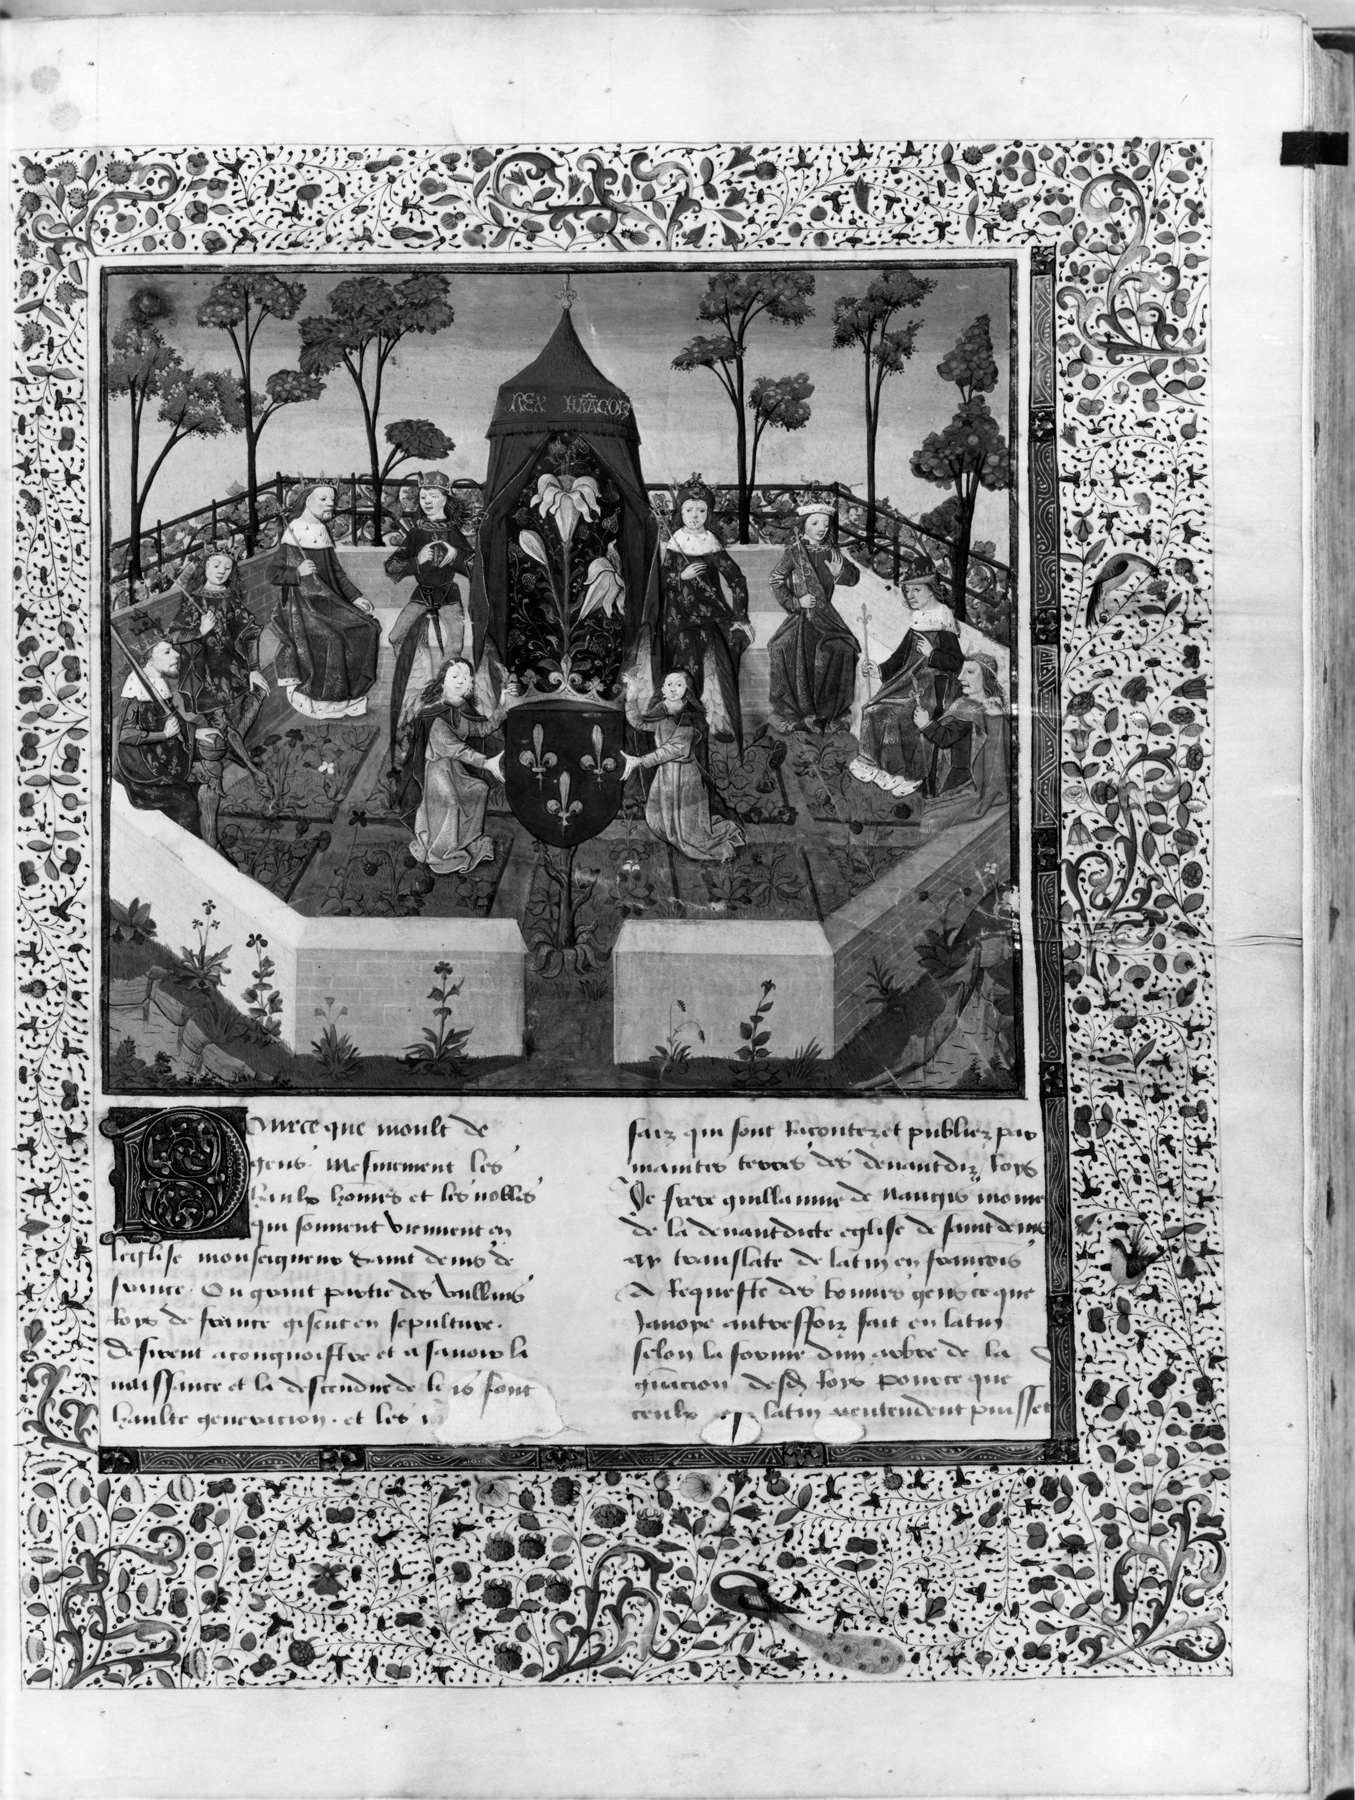 REX FRACOR
Pource que moult de
gens. Mesmement les
haulx hommes et les nobles
qui souuent viennent en
leglise monseigneur saint denis de
france. Ou grant partie des vaillans
Roys de france gisent en sepulture.
Desirent a congnoistre et a sauoir la
naissance et la descendue de le is sont
haulte generacion. et les
faiz qui sont Racontez et publiez par
maintes terres des deuantdiz Roys
Je frere guillaume de nangis moine
de la deuantdicte eglise de saint denis
ay translate de latin en francois
A Requeste des bonnes gens ce que
Jauoye autreffoiz fait en latin
selon la forme dun arbre de la
gnacion desd Roys pource que
ceulx latin nentendent puisset